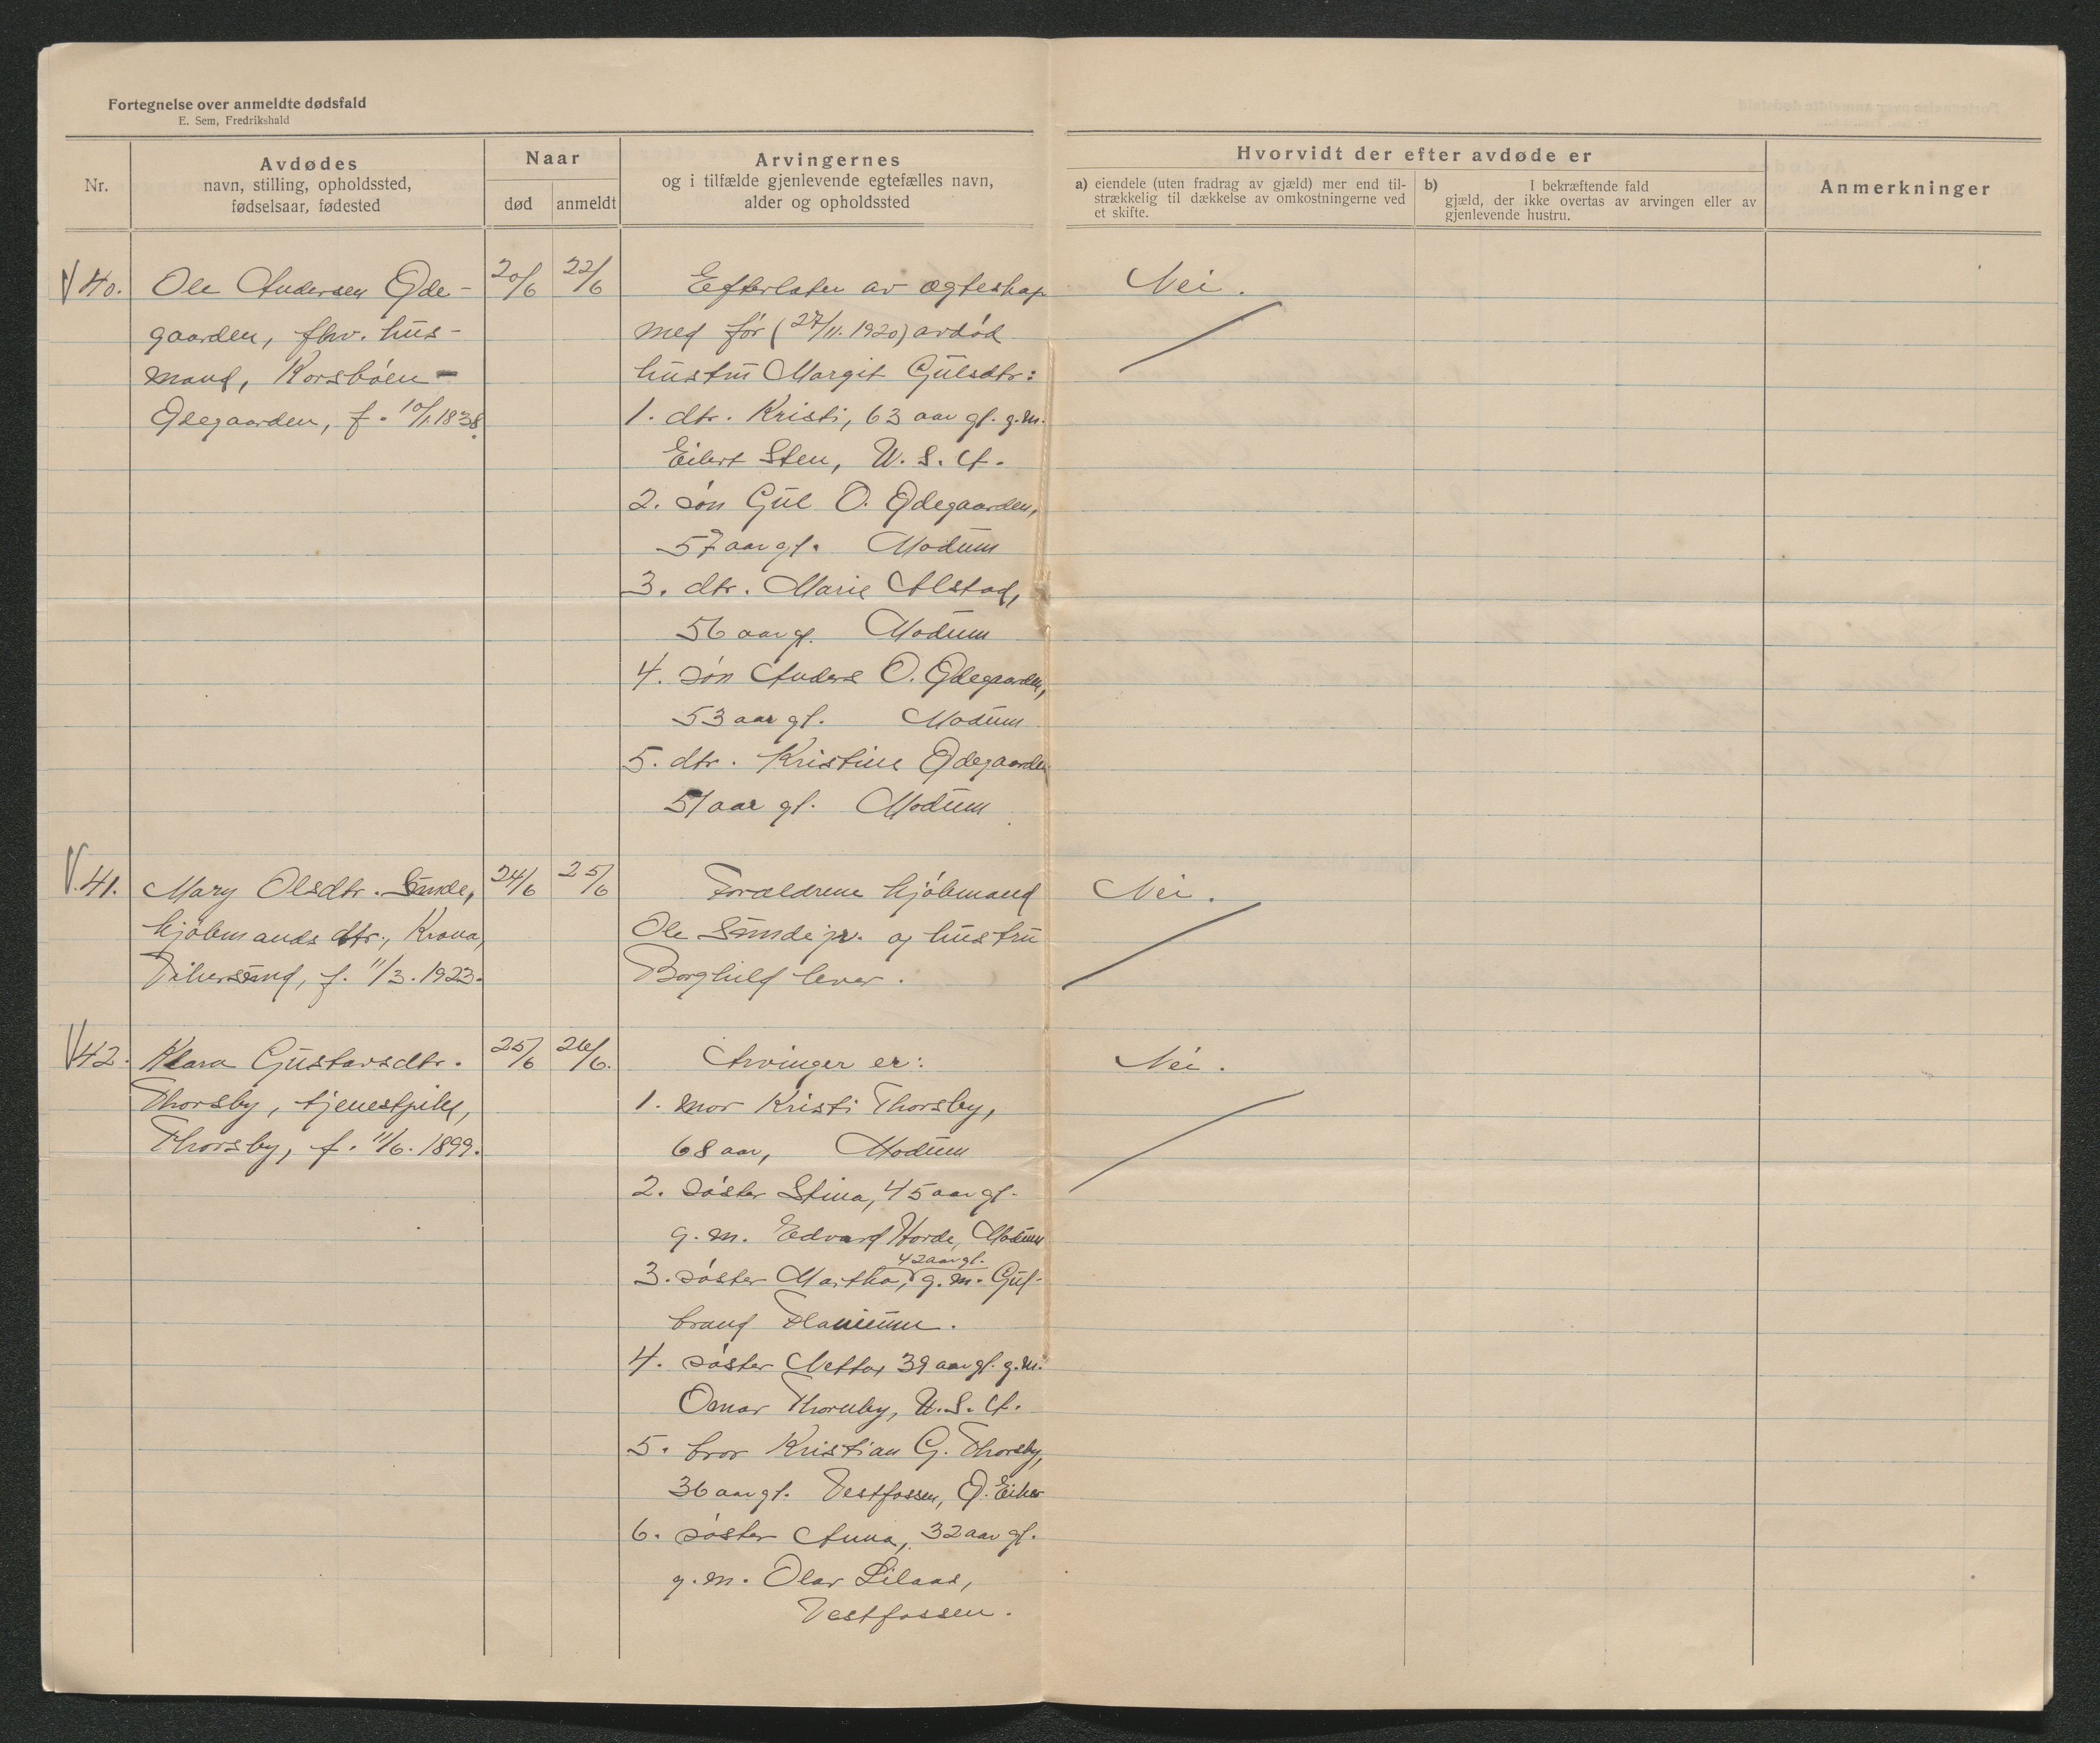 Fortegnelse over anmeldte dødsfald
E. Sem, Fredrikshald
Nr.
Avdødes
navn, stilling, opholdssted,
fødselsaar, fødested
Naar
død
anmeldt
Arvingernes
og i tilfælde gjenlevende egtefælles navn,
alder og opholdssted
Hvorvidt der efter avdøde er
a) eiendele (uten fradrag av gjæld) mer end til-
strækkelig til dækkelse av omkostningerne ved
et skifte.
b) I bekræftende fald
gjæld, der ikke overtas av arvingen eller av
gjenlevende hustru.
Anmerkninger
40. Ole Andersen Øde-
gaarden, fhv. hus-
mand, Korsbøen-
Ødegaarden, f. 10/1 1838.
20/6
22/6
Efterlater av ægteskap
med før (27/11. 1920) avdød
hustru Margit Gulsdtr:
1. dtr. Kristi, 63 aar gl. g.m.
Eilert Sten, U. S. A.
2. søn Gul O. Ødegaarden,
57 aar gl. Modum
3. dtr. Marie Alstad,
56 aar gl. Modum
4. søn Anders O. Ødegaarden,
53 aar gl. Modum
5. dtr. Kristine Ødegaarden
51 aar gl. Modum
Nei.
41. Mary Olsdtr. Sunde,
kjøbmands dtr., Krona,
Vikersund, f. 11/3. 1923.
24/6
25/6
Forældrene kjøbmand
Ole Sunde jr. og hustru
Borghild lever.
Nei.
42. Klara Gustavsdtr.
Thorsby, tjenestpike,
Thorsby, f. 11/6. 1899.
25/6
26/6.
Arvinger er:
1. mor Kristi Thorsby,
68 aar, Modum
2. søster Stina, 45 aar gl.
g. m. Edvard Horde, Modum
42 aar gl.
3. søster Martha, g. m. Gul-
brand
4. søster Netta, 39 aar gl. g.m.
Omar Thornby, U. S. A.
5. bror Kristian G. Thorsby,
36 aar gl. Vestfossen, Ø. Eiker
6. søster Anna, 32 aar gl.
g. m. Olav Lilaas,
Vestfossen.
Nei.